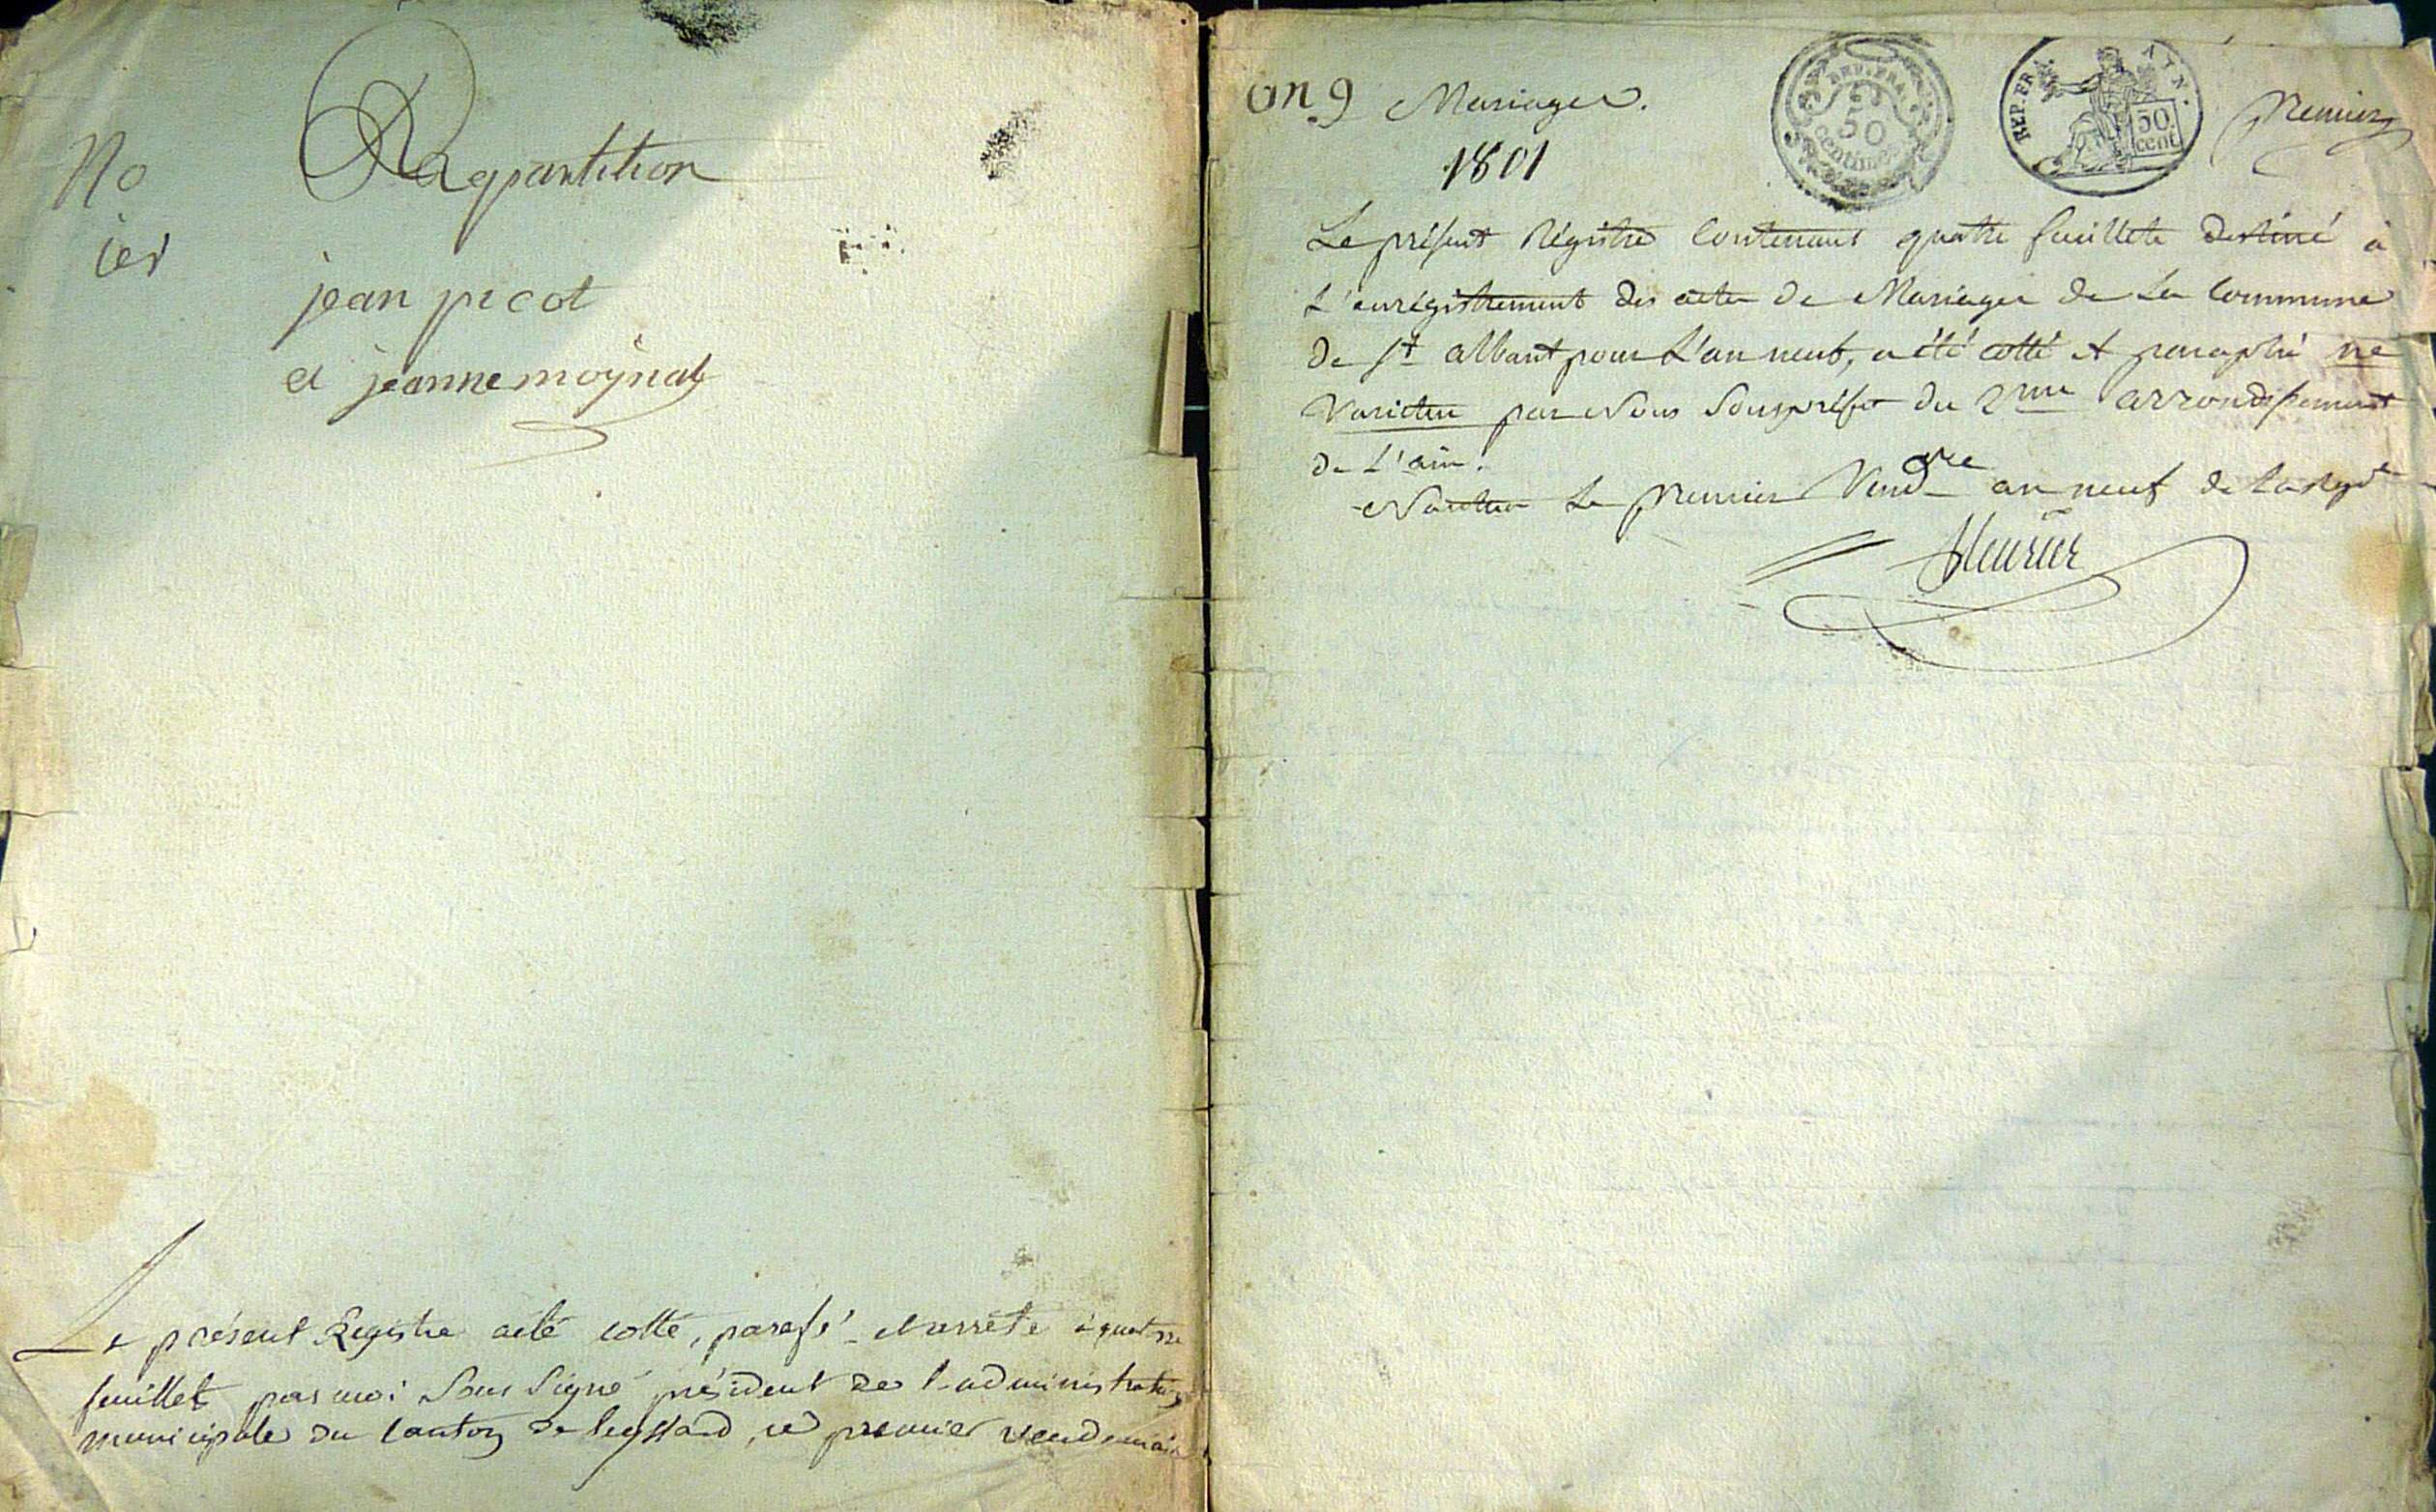 No
ier
Rapartition
jean picot
et jeanne moynat
Le présent Registre a été cotté, parafé et arrêté à quatre
feuillet par moi Sous Signé président de l'administration
municipale du Canton de leyssard, ce premier vendemiaire
an 9 Mariages.
1801
REP. FRA.
50
centimes
REP. FRA. NAT.
50
cent
Premier
Le présent Régistre Contenant quatre feuillets destiné à
L'enrégistrement des actes de Mariages de La Commune
de St alban pour L'an neuf, a été cotté et paraphé ne
Varietur par Nous Sousprefet du 2me arrondissement
de L'ain.
Nantua Le premier Vendre an neuf de la